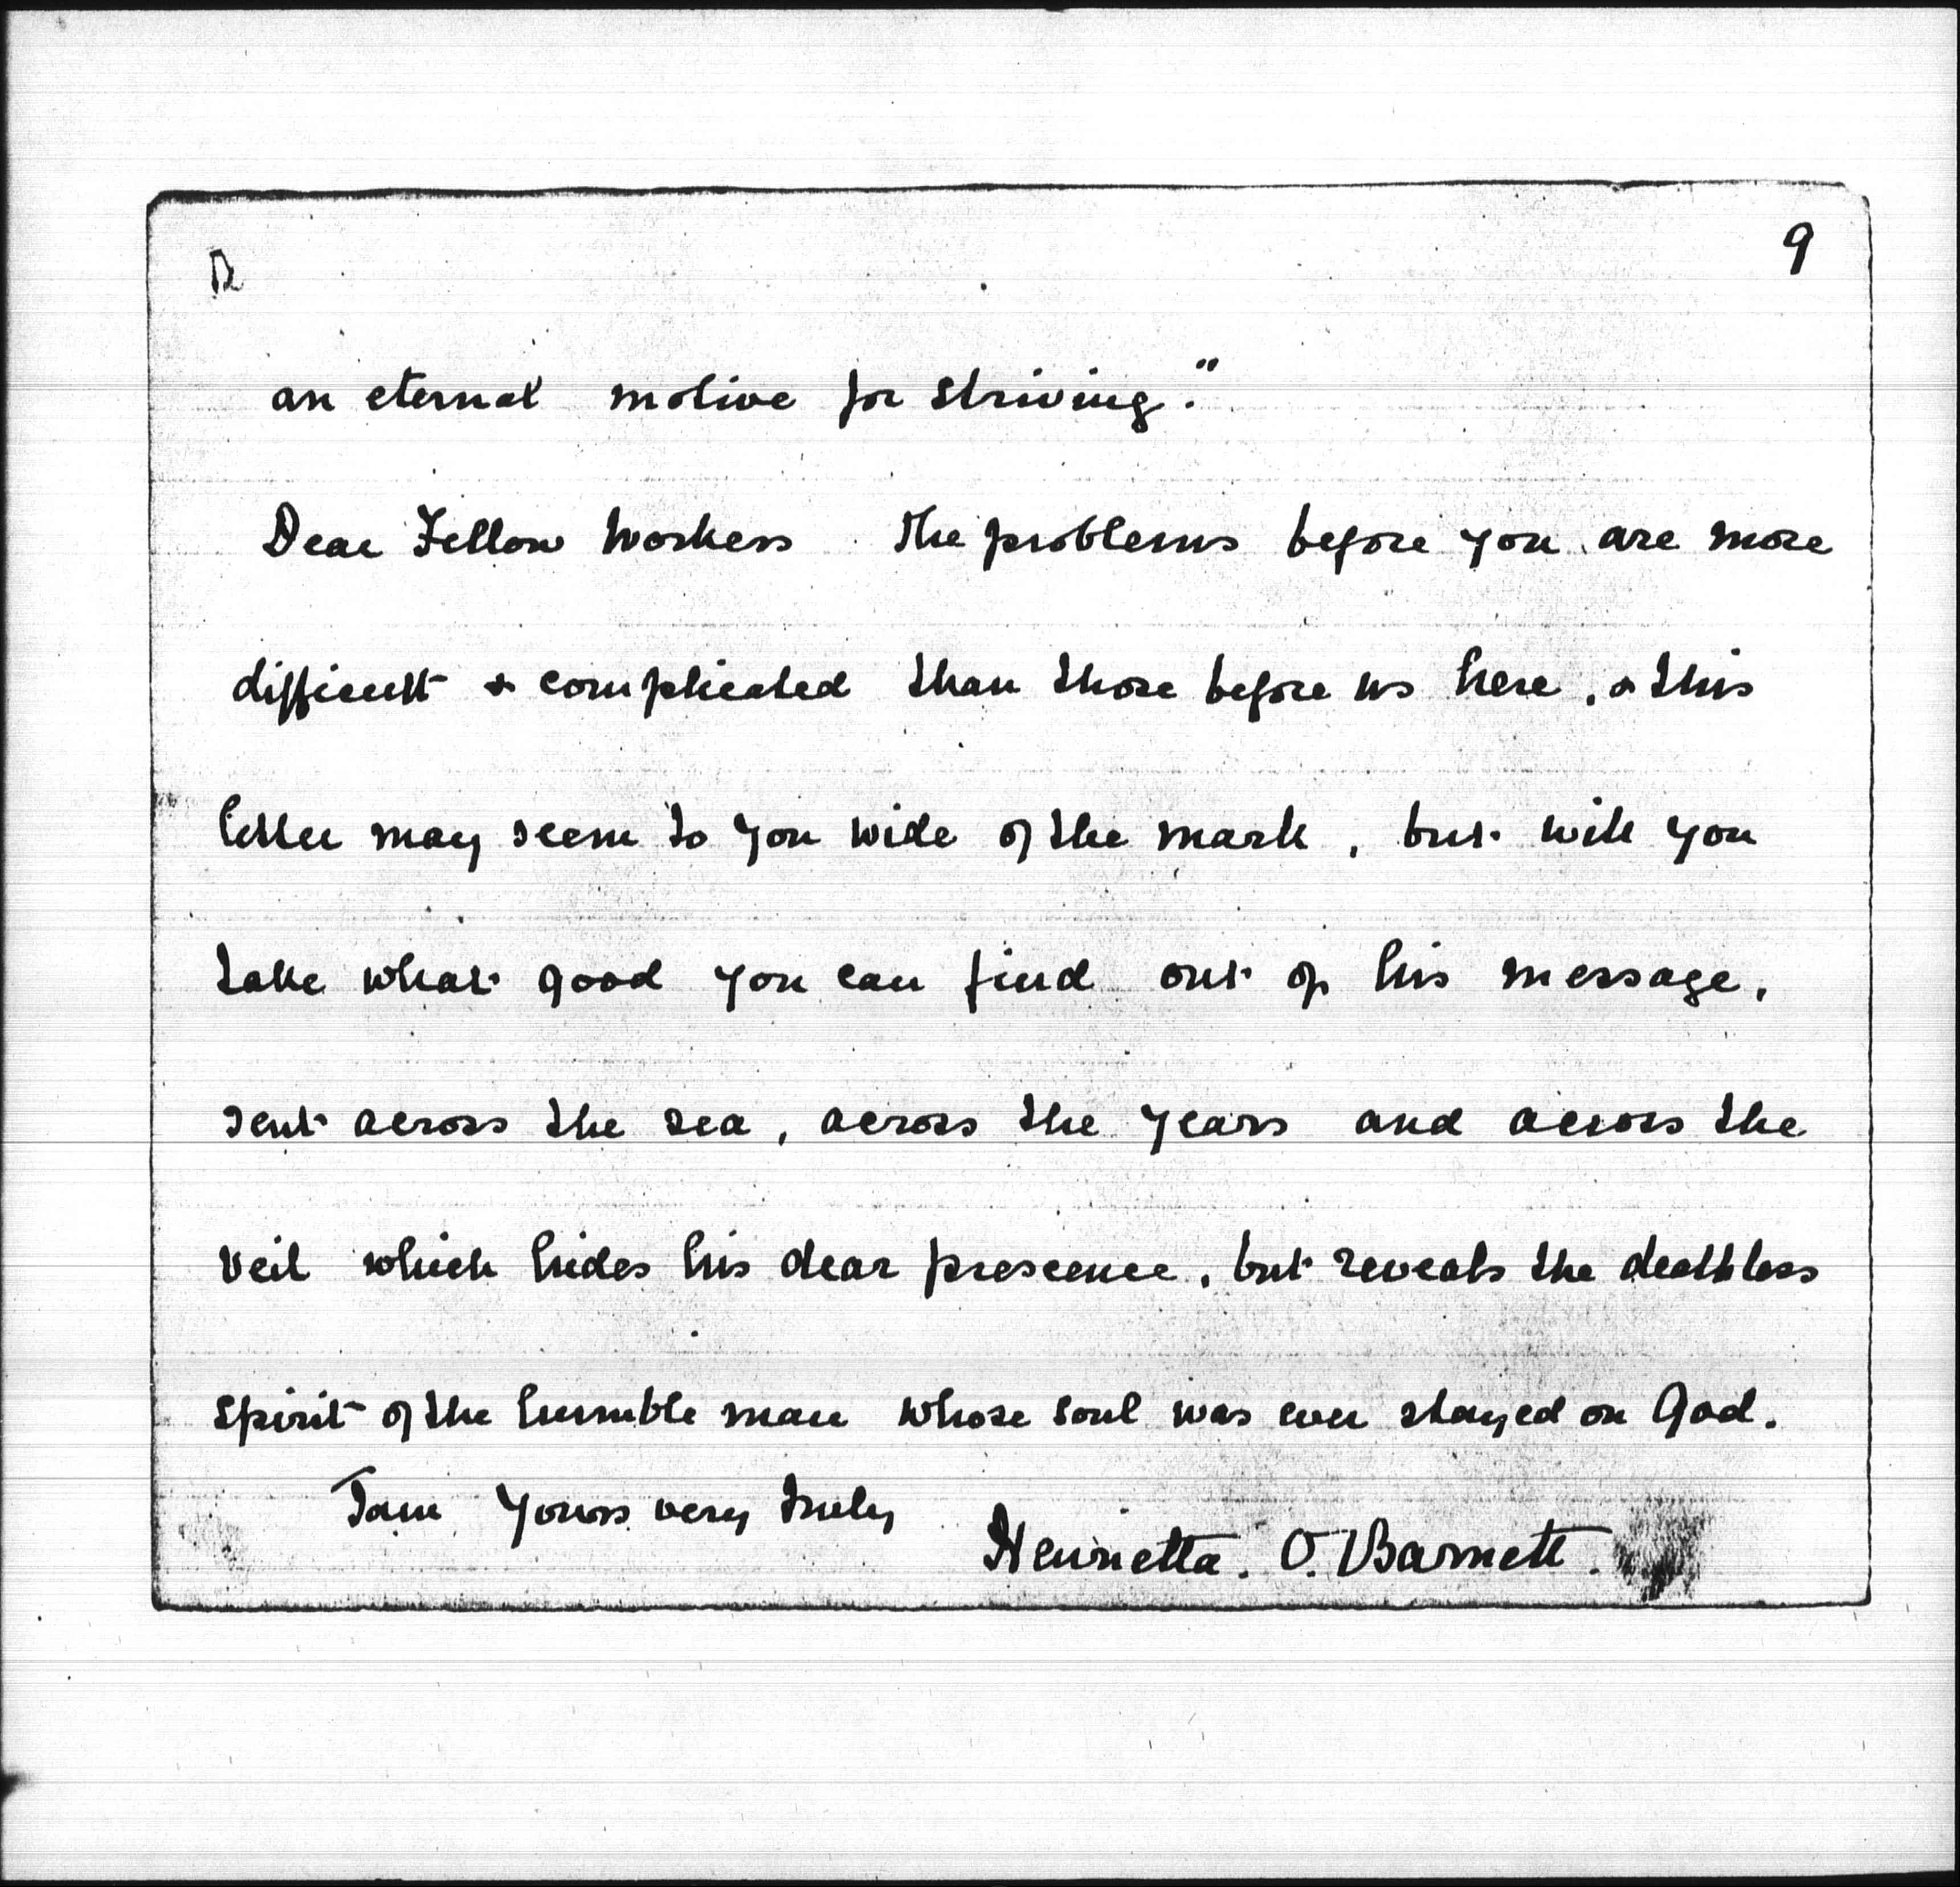 9
an eternal motive for striving."
Dear Fellow Workers the problems before you are more
difficult & complicated than those before us here, & this
letter may seem to you wide of the mark, but will you
take what good you can find out of his message,
sent across the sea, across the years and across the
veil which hides his dear prescence, but reveals the deathless
spirit of the humble man whose soul was ever stayed on God.
I am Yours very truly
Henrietta. O. Barnett.